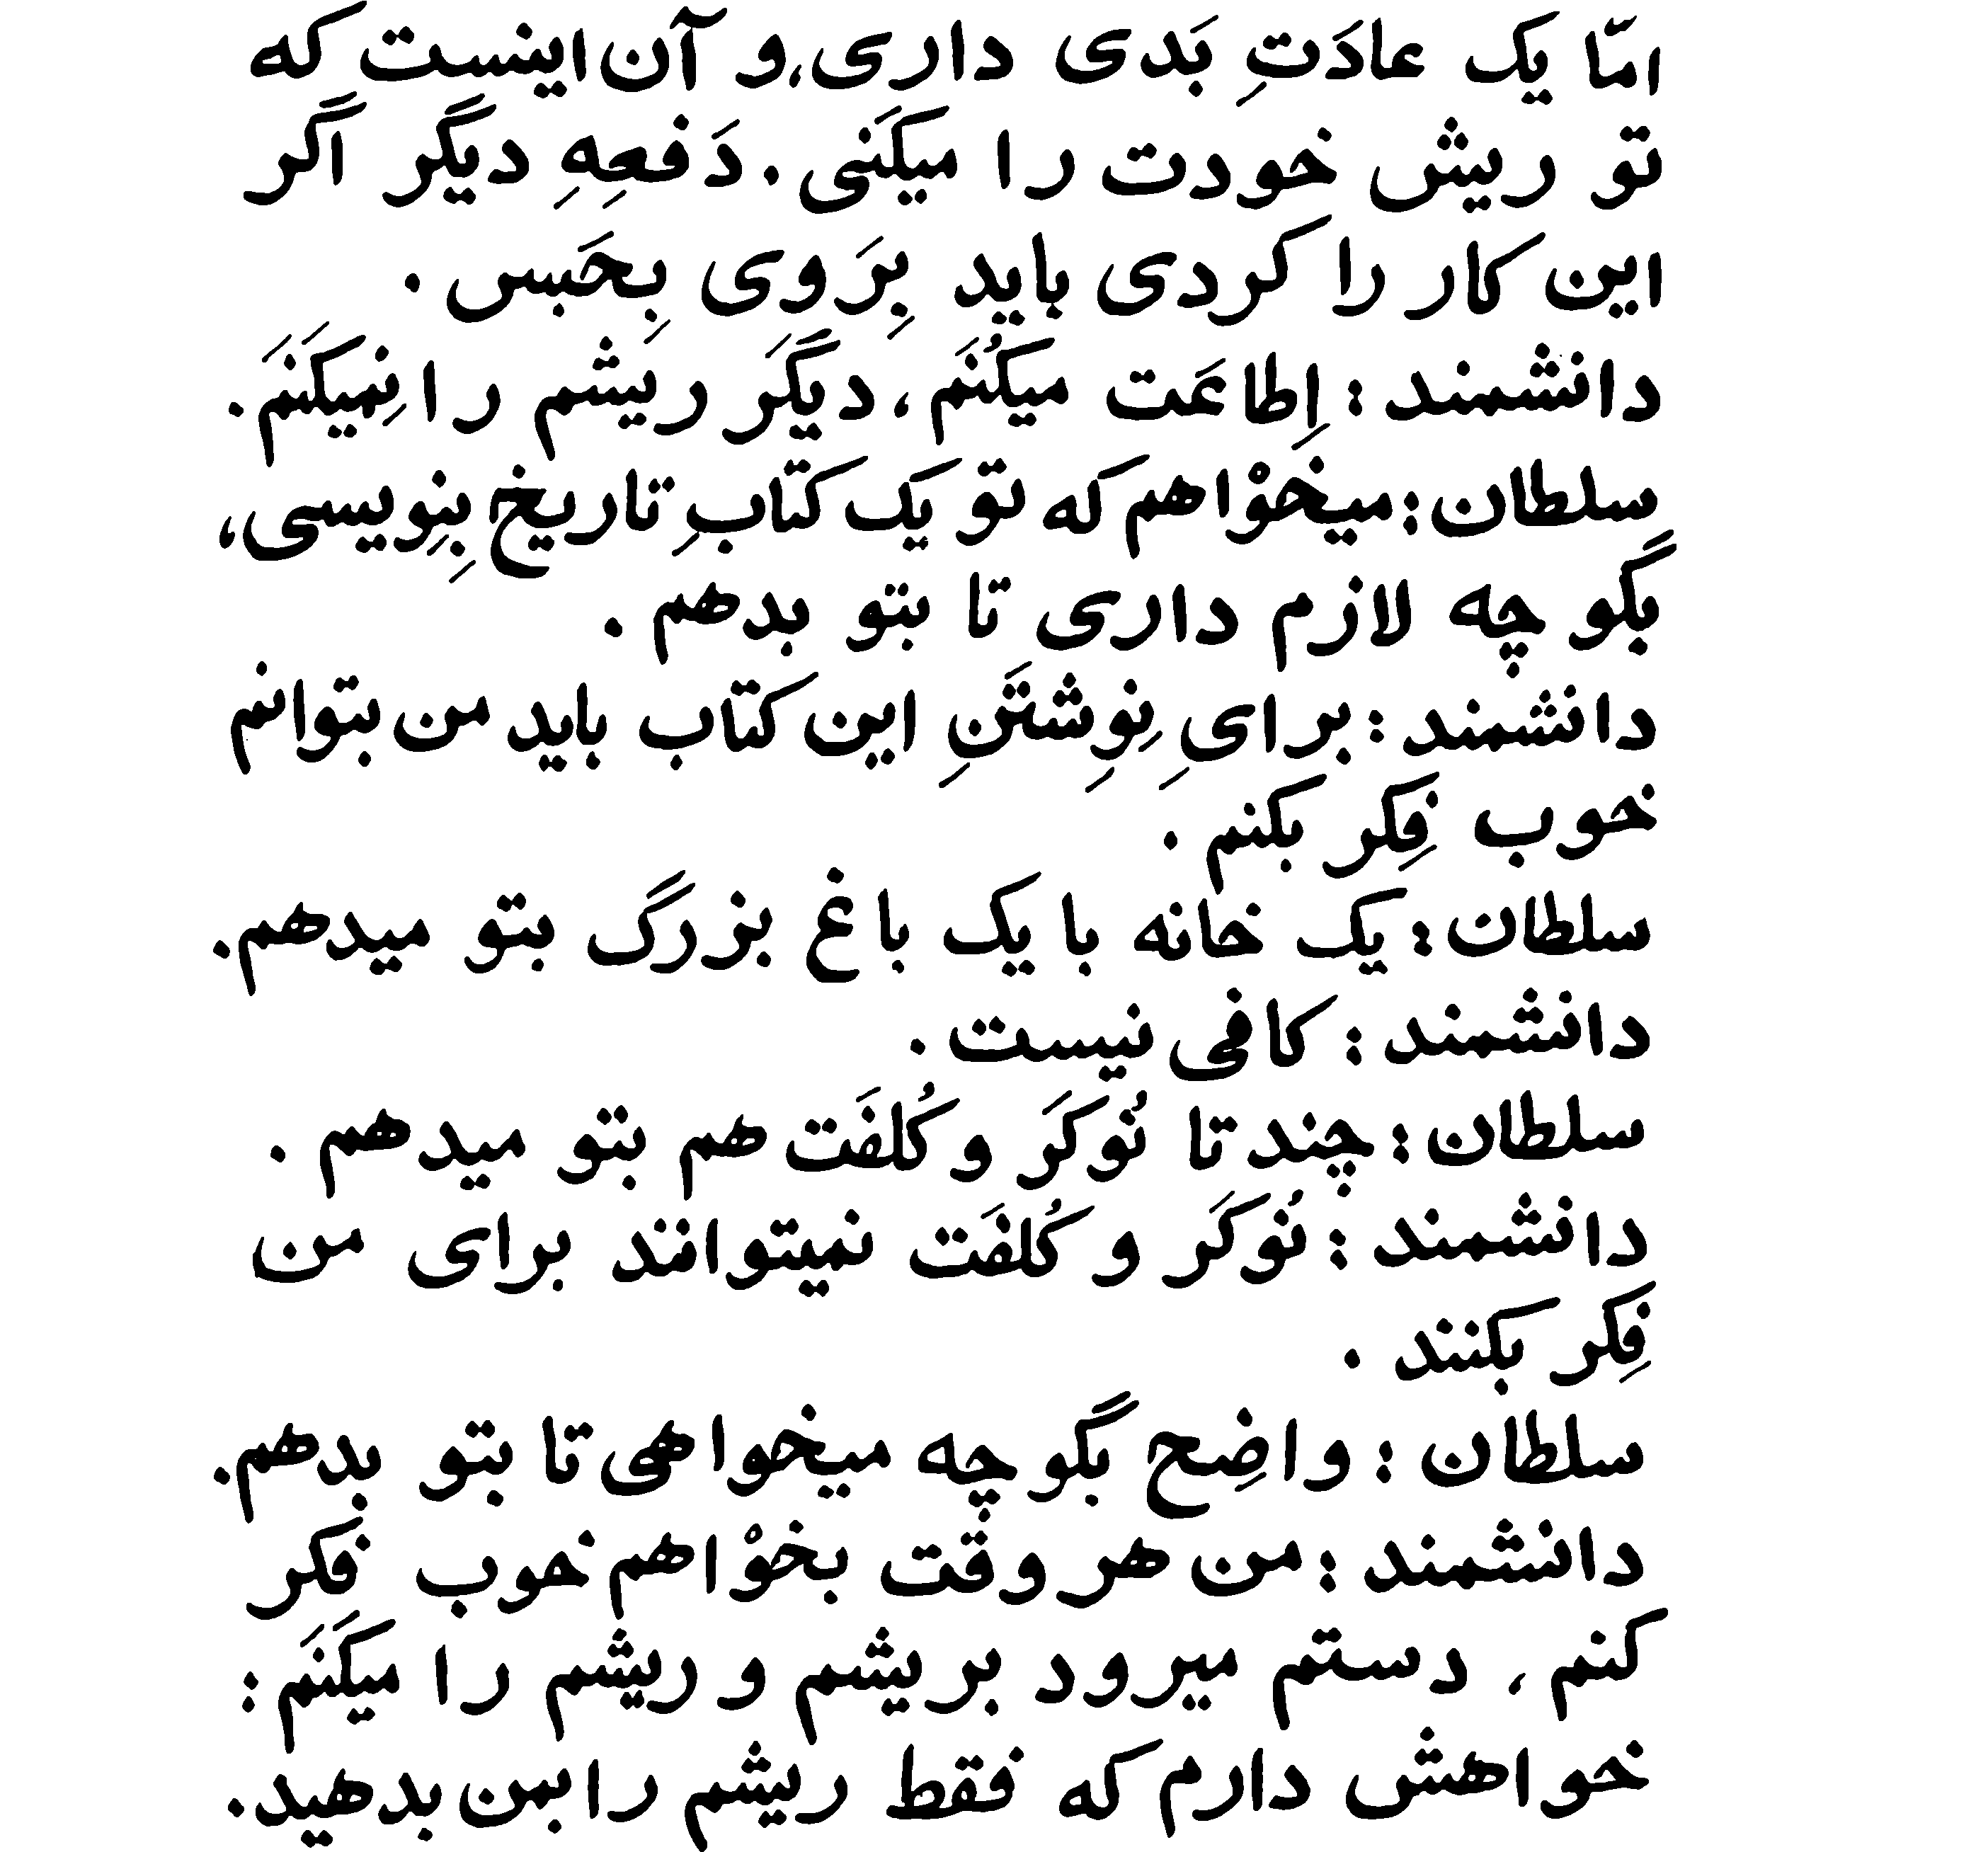 امّا یَک عادَتِ بَدی داری،و آن اینست که
تو ریش خودت را میکَنی . دَفعِهِ دیگَر اگَر
این کار را کردی باید بِرَوی بِحَبس .
دانشمند : اِطاعَت میکُنَم ، دیگَر ریشم را نِمیکَنَم .
سلطان : میخوْاهم که تو یَک کتابِ تاریخ بِنِویسی ،
بگو چه لازم داری تا بتو بدهم .
دانشمند : برایِ نِوِشتَنِ این کتاب باید من بتوانم
خوب فِکر بکنم .
سلطان : یک خانه با یک باغ بزرگ بتو میدهم .
دانشمند : کافی نیست .
سلطان : چند تا نُوکَر و کُلفَت هم بتو میدهم .
دانشمند : نُوکَر و کُلفَت نمیتوانند برای من
فِکر بکنند .
سلطان : واضِح بگو چه میخواهی تا بتو بدهم .
دانشمند : من هر وقت بخوْاهم خوب فکر
کنم ، دستم میرود بریشم و ریشم را میکَنَم :
خواهش دارم که فقط ریشم را بمن بدهید .